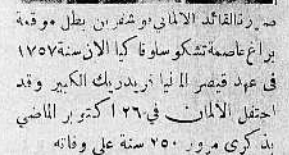 صورة القائد الالماني فون شفرين بطل موقعة
براغ عاصمة تشكوسلوفاكيا الآن سنة ١٧٥٧
في عهد قيصر المانيا فريدريك الكبير وقد
احتفل الالمان في ٢٦ اكتوبر الماضي
بذكرى مرور ٢٥٠ سنة على وفاته